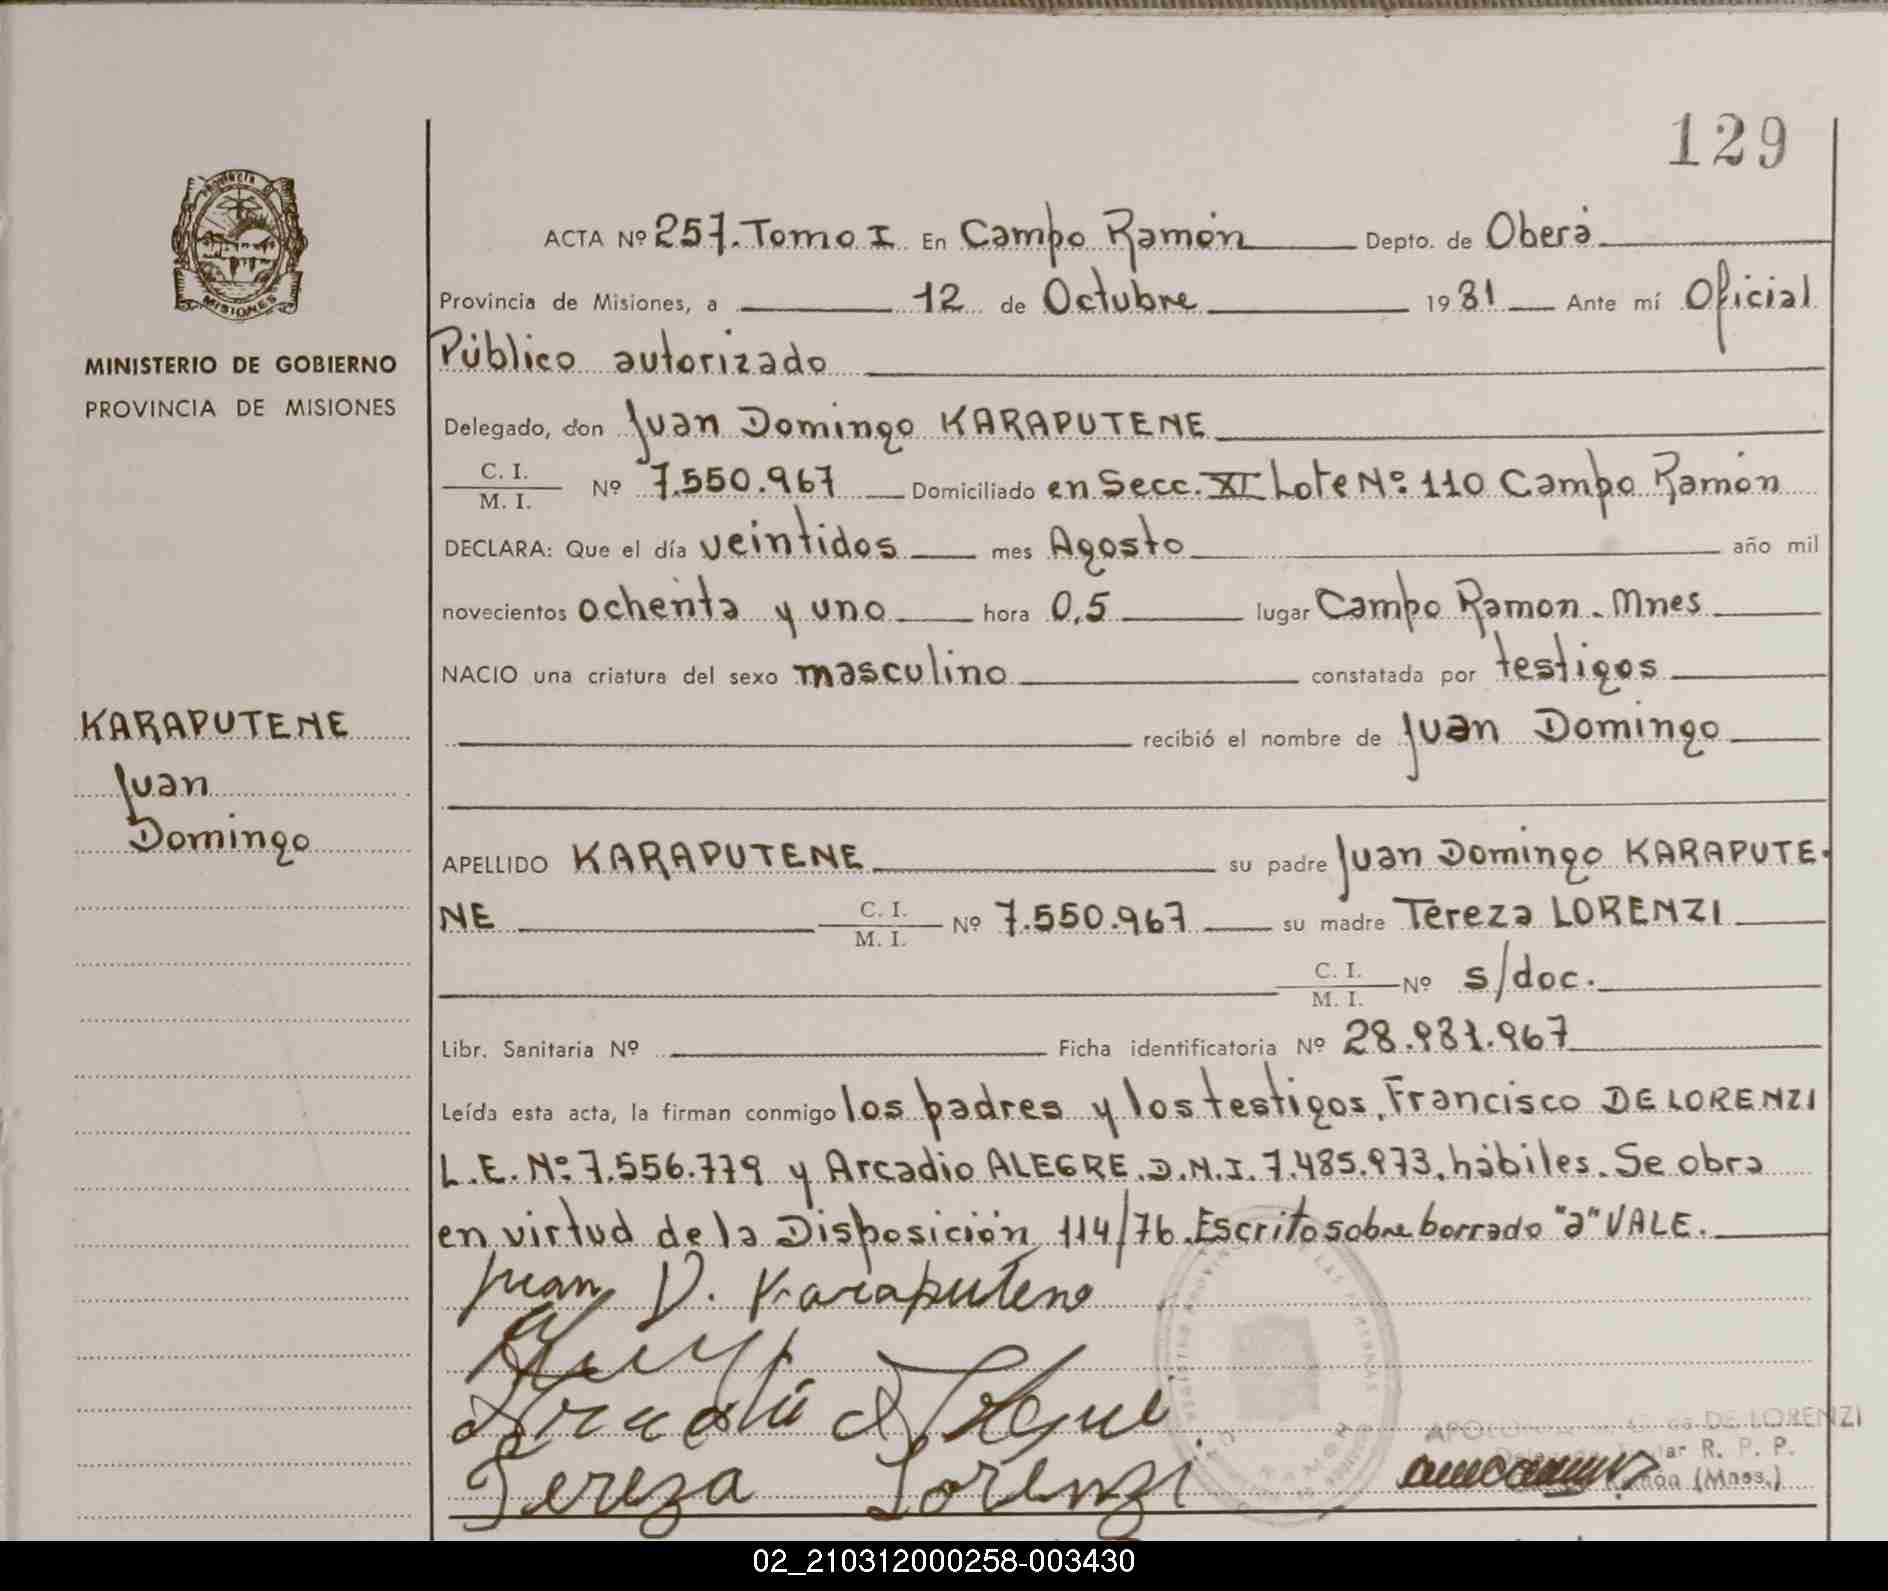 129
ACTA Nº 257. Tomo I En Campo Ramón Depto. de Oberá
Provincia de Misiones, a 12 de Octubre 1981 Ante mí Oficial
Público autorizado
Delegado, don Juan Domingo KARAPUTENE
C. I.
M. I. Nº 7.550.967 Domiciliado en Secc. XI Lote Nº: 110 Campo Ramón
DECLARA: Que el día veintidos mes Agosto año mil
novecientos ochenta y uno hora 0,5 lugar Campo Ramon - Mnes
NACIO una criatura del sexo masculino constatada por testigos
recibió el nombre de Juan Domingo
APELLIDO KARAPUTENE su padre Juan Domingo KARAPUTE-
NE C. I. M. I. Nº 7.550.967 su madre Tereza LORENZI
C. I. M. I. Nº s/doc.
Libr. Sanitaria Nº Ficha identificatoria Nº 28.981.967
Leída esta acta, la firman conmigo los padres y los testigos, Francisco DE LORENZI
L.E. Nº: 7.556.779 y Arcadio ALEGRE. D.N.I. 7.485.973, hábiles. Se obra
en virtud de la Disposición 114/76. Escrito sobre borrado "a" VALE.
Juan D. Karaputene
Tereza Lorenzi
DE LORENZI
R. P. P.
(Mnes.)
PROVINCIA DE
MISIONES
MINISTERIO DE GOBIERNO
PROVINCIA DE MISIONES
KARAPUTENE
Juan
Domingo
02_210312000258-003430